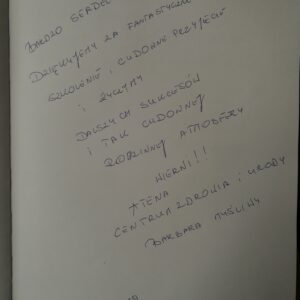 BARDZO SERDE
DZIĘKUJEMY ZA FANTASTYCZN
SZKOLENIE I CUDOWNE PRZYJĘCIE
I ŻYCZYMY
DALSZYCH SUKCESÓW
I TAK CUDOWNEJ
RODZINNEJ ATMOSFERY
WIERNI!!
ATENA
CENTRUM ZDROWIA I URODY
BARBARA